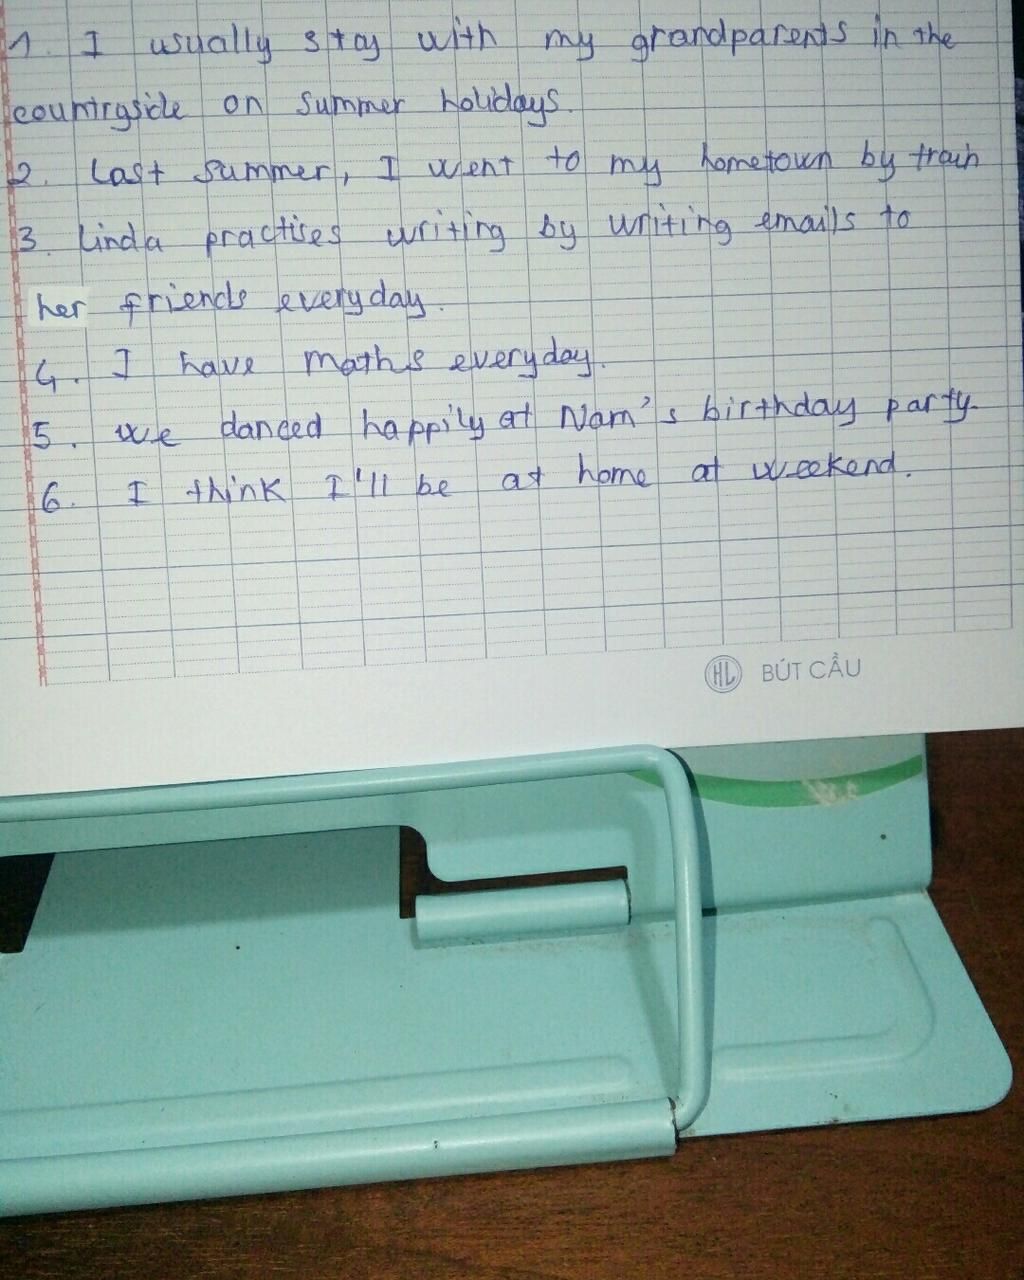 1. I usually stay with my grandparents in the
countryside on summer holidays.
2. Last summer, I went to my hometown by train
3. Linda practises writing by writing emails to
her friends everyday.
4. I have maths everyday.
5. We danced happily at Nam's birthday party.
6. I think I'll be at home at weekend.
HL BÚT CẦU